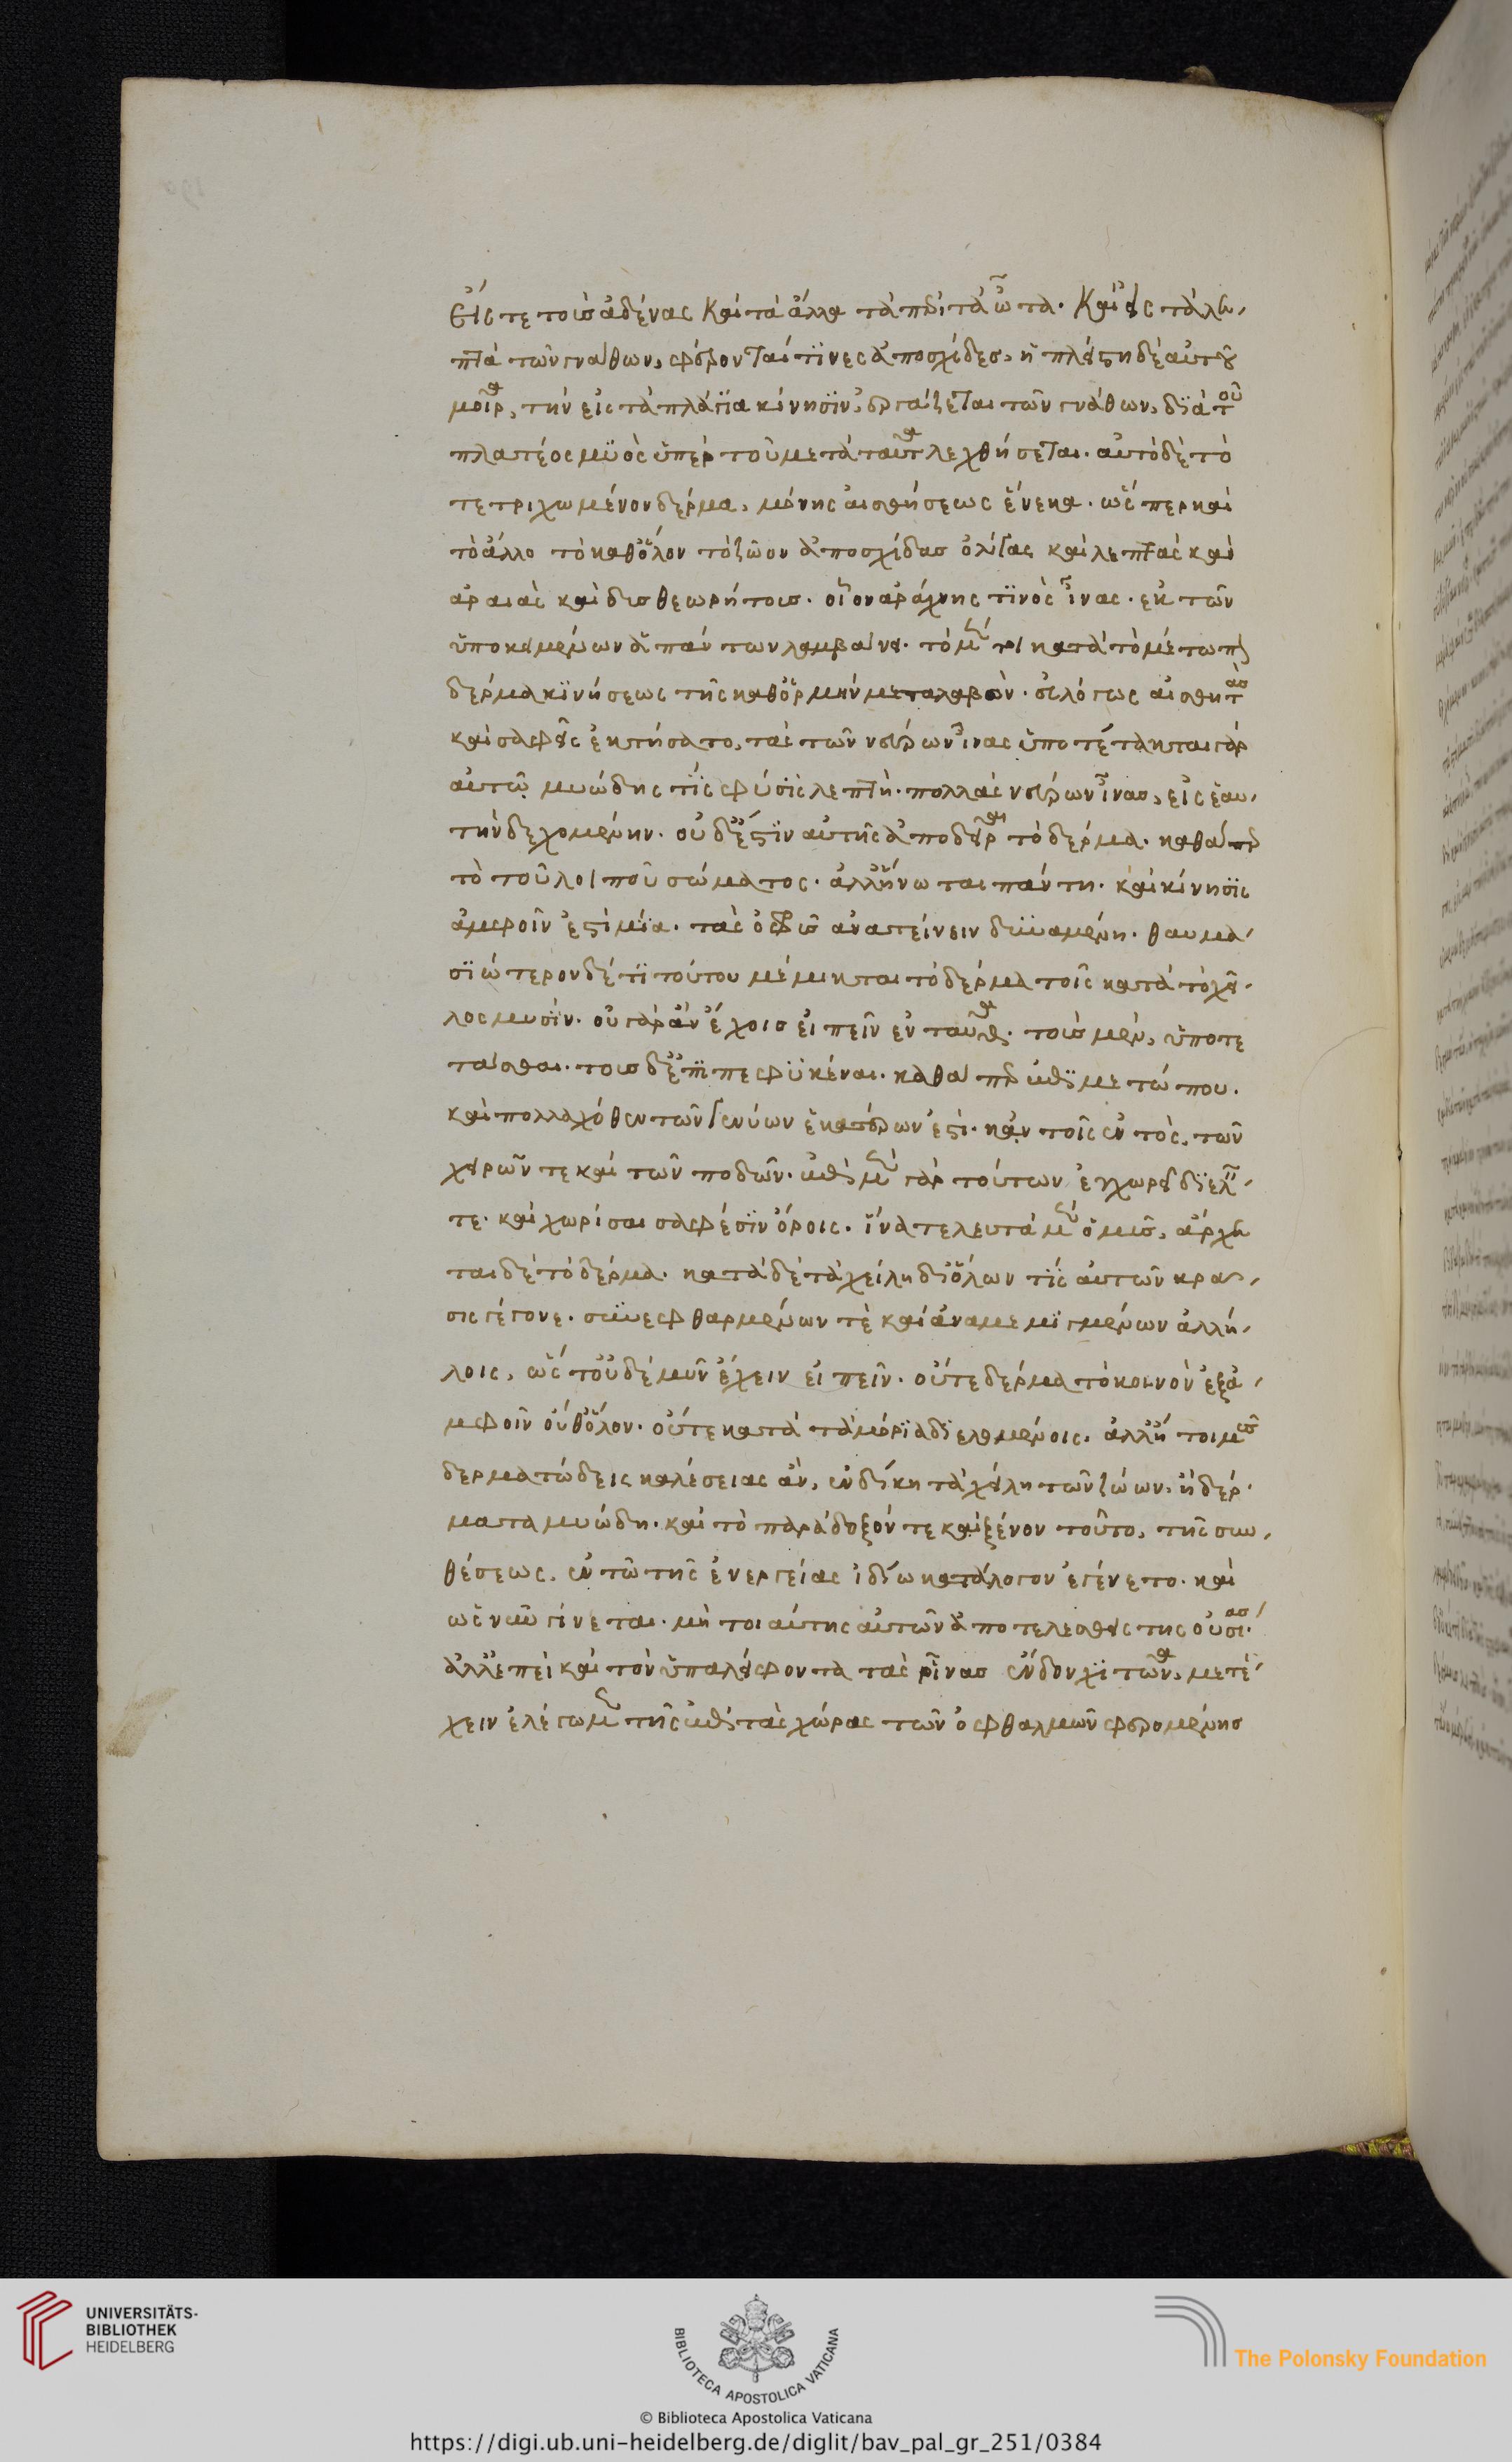 Εἴς τε τοὺσ ἀδένας καὶ τὰ ἄλλα τὰ περὶ τὰ ὦτα. καὶ εἰς τὰ λε,
πτὰ τῶν γνάθων, φέρονταί τινες ἀποσχίδεσ, ἡ πλείστη δὲ αὐτοῦ
μοῖρα, τὴν εἰς τὰ πλάγια κίνησιν ἐργάζεται τῶν γνάθων, διὰ τοῦ
πλατέος μυὸς ὑπὲρ τοῦ μετὰ ταῦτα λεχθήσεται. αὐτὸ δὲ τὸ
τετριχωμένον δέρμα, μόνης αἰσθήσεως ἕνεκα. ὥς περ καὶ
τὸ ἄλλο τὸ καθόλον τὸ ζῶον ἀποσχίδασ ὀλίγας καὶ λεπτὰς καὶ
ἀραιὰς καὶ δυσθεωρήτουσ. οἷον ἀράχνης τινὸς ἶνας. ἐκ τῶν
ὑποκειμένων ἁπάντων λαμβάνει. τὸ μέντοι κατὰ τὸ μέτωπον
δέρμα κινήσεως τῆς καθ' ὁρμὴν μεταλαβὸν. εὐλόγως αἰσθητὰσ
καὶ σαφεῖς ἐκτήσατο, τὰς τῶν νεύρων ἶνας ὑποτέτακται γὰρ
αὐτῷ μυώδης τίς φύσις λεπτὴ. πολλὰς νεύρων ἶνασ, εἰς ἑαυ,
τὴν δεχομένην. οὐδ' ἔστιν αὐτῆς ἀποδεῖραι τὸ δέρμα. καθάπερ
τὸ τοῦ λοιποῦ σώματος. ἀλλ' ἥνωται πάντη. καὶ κίνησις
ἀμφοῖν ἐστὶ μία. τὰς ὀφρῦσ ἀνατείνειν δυναμένη. θαυμα,
σιώτερον δέ τι τούτου μέμικται τὸ δέρμα τοῖς κατὰ τὸ χεῖ,
λος μυσὶν. οὐ γὰρ ἂν ἔχοισ εἰπεῖν ἐνταῦθα. τοὺσ μὲν, ὑποτε
τάσθαι. τοὺσ δ' ἐπιπεφυκέναι. καθάπερ ἐπὶ μετώπου.
καὶ πολλαχόθεν τῶν γενύων ἑκατέρων ἐστὶ. κἀν τοῖς ἐντὸς, τῶν
χειρῶν τε καὶ τῶν ποδῶν. ἐπὶ μὲν γὰρ τούτων ἐγχωρεῖ διελεῖν,
τε. καὶ χωρίσαι σαφέσιν ὅροις. ἵνα τελευτᾶ μὲν ὁ μῦσ, ἄρχε
ται δὲ τὸ δέρμα. κατὰ δὲ τὰ χείλη δι' ὅλων τίς αὐτῶν κρα,
σις γέγονε. συνεφθαρμένων τὲ καὶ ἀναμεμιγμένων ἀλλή,
λοις, ὥς τ' οὐδέ μῦν ἔχειν εἰπεῖν. οὔτε δέρμα τὸ κοινὸν ἐξ ἀ,
μφοῖν οὔθ' ὅλον. οὔτε κατὰ τὰ μόρια διελομένοις. ἀλλ' ἤτοι μῦσ
δερματώδεις καλέσειας ἂν, ἐν δίκη τὰ χείλη τῶν ζώων. ἢ δέρ.
ματα μυώδη. καὶ τὸ παράδοξόν τε καὶ ξένον τοῦτο, τῆς συν,
θέσεως, ἐν τῶ τῆς ἐνεργείας ἰδίω κατάλογον ἐγένετο. καὶ
ὡς νῦν γίνεται. μὴ τοιαύτης αὐτῶν ἀποτελεσθείσης τῆς οὐσίασ.
ἀλλ' ἐπεὶ καὶ τὸν ὑπαλείφοντα τὰς ρῖνασ ἔνδον χιτῶνα, μετέ,
χειν ἐλέγομεν τῆς ἐπὶ τὰς χώρας τῶν ὀφθαλμῶν φερομένησ
UNIVERSITÄTS-
BIBLIOTHEK
HEIDELBERG
BIBLIOTECA APOSTOLICA VATICANA
The Polonsky Foundation
© Biblioteca Apostolica Vaticana
https://digi.ub.uni-heidelberg.de/diglit/bav_pal_gr_251/0384